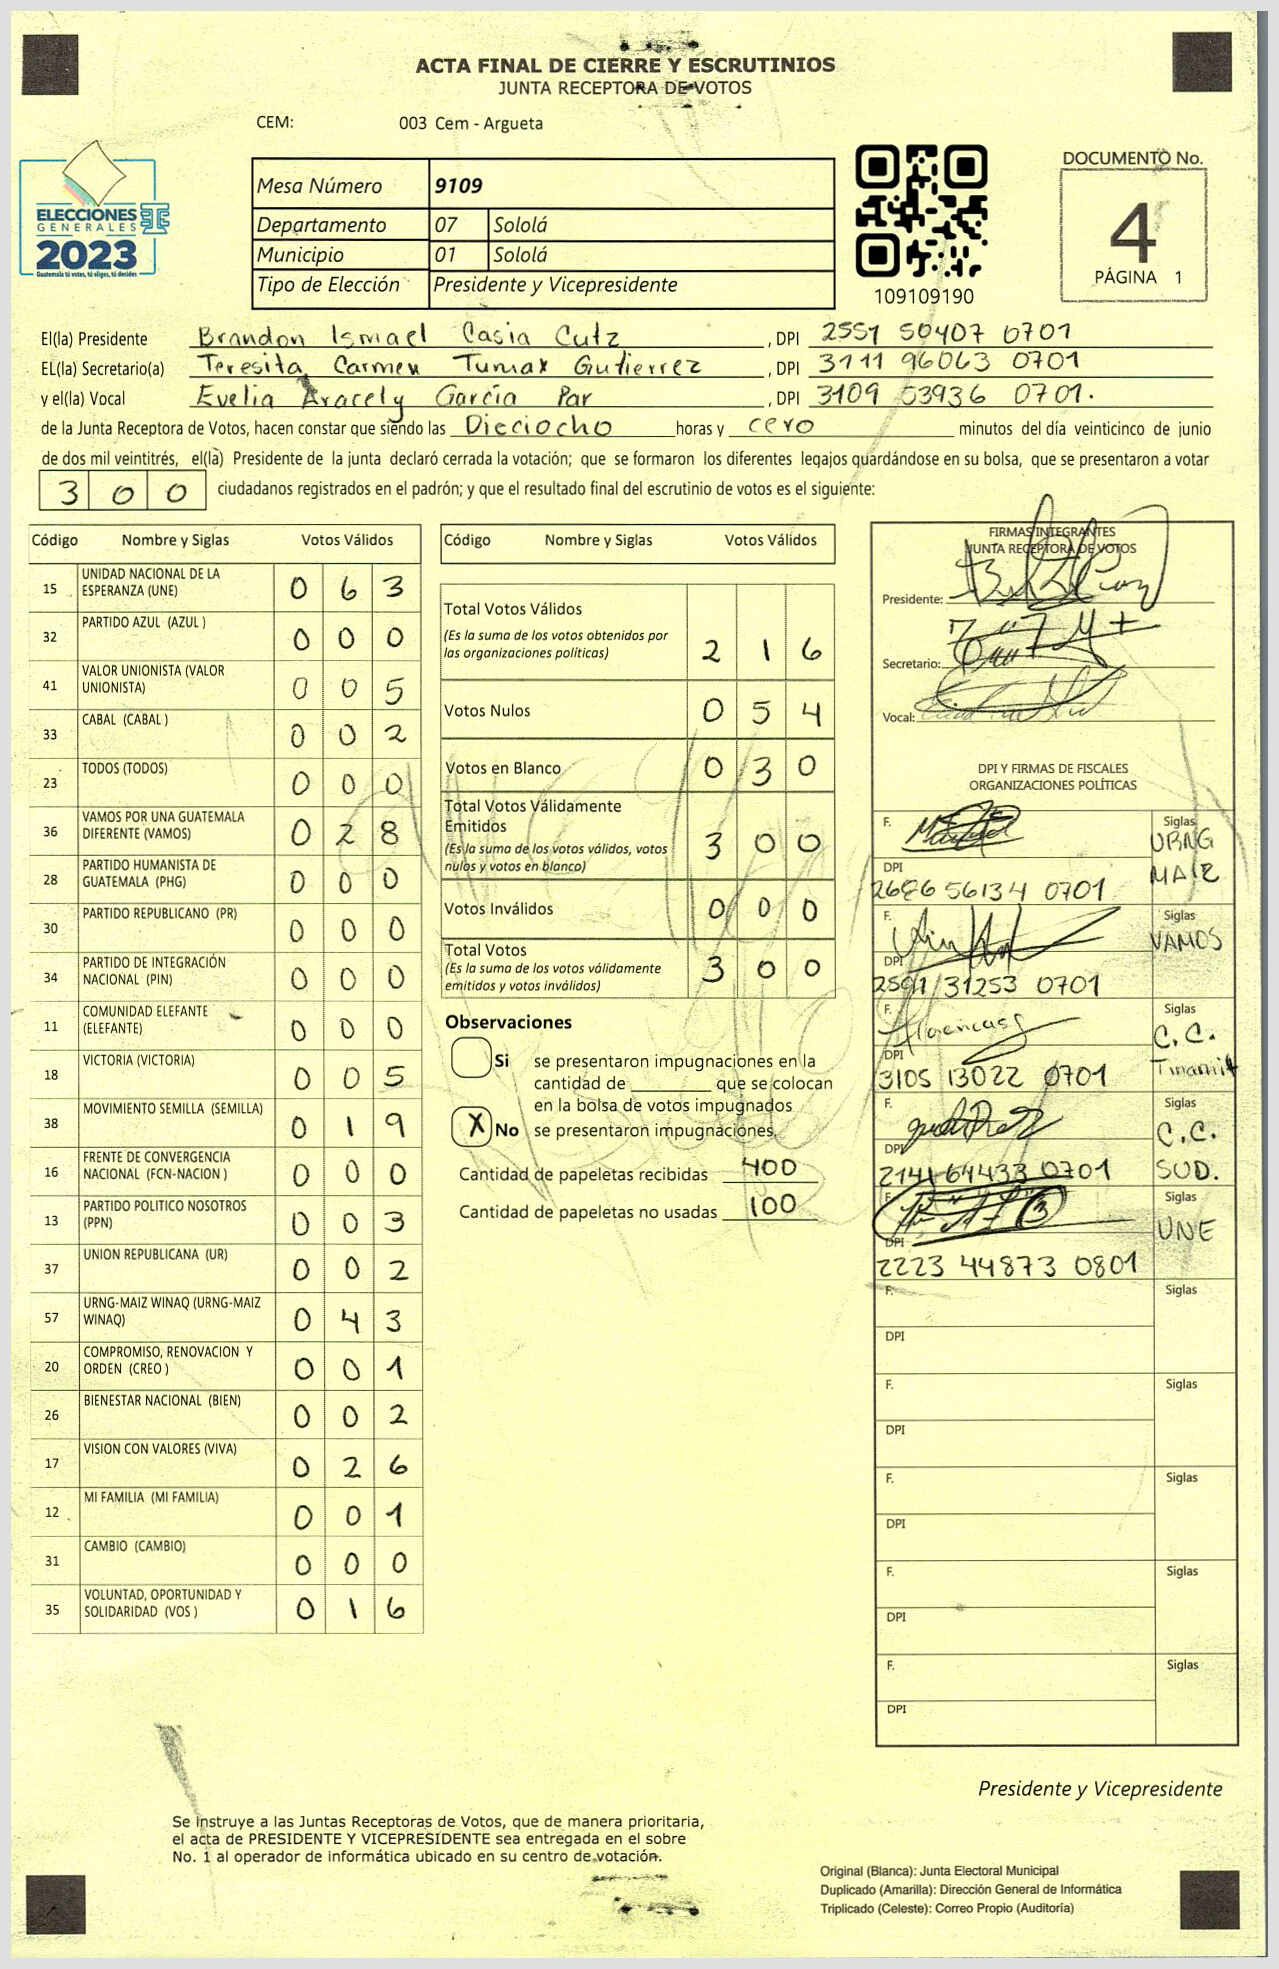 ACTA FINAL DE CIERRE Y ESCRUTINIOS
JUNTA RECEPTORA DE VOTOS
CEM: 003 Cem - Argueta
ELECCIONES
GENERALES
2023
Guatemala tú votas, tú eliges, tú decides
Mesa Número 9109
Departamento 07 Sololá
Municipio 01 Sololá
Tipo de Elección Presidente y Vicepresidente
109109190
DOCUMENTO No.
4
PÁGINA 1
El(la) Presidente Brandon Ismael Casia Cutz, DPI 2551 50407 0701
EL(la) Secretario(a) Teresita Carmen Tumax Gutierrez, DPI 3111 96063 0701
y el(la) Vocal Evelia Aracely García Par, DPI 3109 53936 0701.
de la Junta Receptora de Votos, hacen constar que siendo las Dieciocho horas y cero minutos del día veinticinco de junio
de dos mil veintitrés, el(la) Presidente de la junta declaró cerrada la votación; que se formaron los diferentes legajos guardándose en su bolsa, que se presentaron a votar
300 ciudadanos registrados en el padrón; y que el resultado final del escrutinio de votos es el siguiente:
Código Nombre y Siglas Votos Válidos
15 UNIDAD NACIONAL DE LA ESPERANZA (UNE) 0 6 3
32 PARTIDO AZUL (AZUL ) 0 0 0
41 VALOR UNIONISTA (VALOR UNIONISTA) 0 0 5
33 CABAL (CABAL ) 0 0 2
23 TODOS (TODOS) 0 0 0
36 VAMOS POR UNA GUATEMALA DIFERENTE (VAMOS) 0 2 8
28 PARTIDO HUMANISTA DE GUATEMALA (PHG) 0 0 0
30 PARTIDO REPUBLICANO (PR) 0 0 0
34 PARTIDO DE INTEGRACIÓN NACIONAL (PIN) 0 0 0
11 COMUNIDAD ELEFANTE (ELEFANTE) 0 0 0
18 VICTORIA (VICTORIA) 0 0 5
38 MOVIMIENTO SEMILLA (SEMILLA) 0 1 9
16 FRENTE DE CONVERGENCIA NACIONAL (FCN-NACION ) 0 0 0
13 PARTIDO POLITICO NOSOTROS (PPN) 0 0 3
37 UNION REPUBLICANA (UR) 0 0 2
57 URNG-MAIZ WINAQ (URNG-MAIZ WINAQ) 0 4 3
20 COMPROMISO, RENOVACION Y ORDEN (CREO ) 0 0 1
26 BIENESTAR NACIONAL (BIEN) 0 0 2
17 VISION CON VALORES (VIVA) 0 2 6
12 MI FAMILIA (MI FAMILIA) 0 0 1
31 CAMBIO (CAMBIO) 0 0 0
35 VOLUNTAD, OPORTUNIDAD Y SOLIDARIDAD (VOS ) 0 1 6
Código Nombre y Siglas Votos Válidos
Total Votos Válidos
(Es la suma de los votos obtenidos por
las organizaciones políticas) 2 1 6
Votos Nulos 0 5 4
Votos en Blanco 0 3 0
Total Votos Válidamente
Emitidos
(Es la suma de los votos válidos, votos
nulos y votos en blanco) 3 0 0
Votos Inválidos 0 0 0
Total Votos
(Es la suma de los votos válidamente
emitidos y votos inválidos) 3 0 0
Observaciones
Si se presentaron impugnaciones en la
cantidad de ________ que se colocan
en la bolsa de votos impugnados
X No se presentaron impugnaciones
Cantidad de papeletas recibidas 400
Cantidad de papeletas no usadas 100
FIRMAS INTEGRANTES
JUNTA RECEPTORA DE VOTOS
Presidente:
Secretario:
Vocal:
DPI Y FIRMAS DE FISCALES
ORGANIZACIONES POLÍTICAS
F. Siglas URNG MAIZ
DPI 2686 56134 0701
F. Siglas VAMOS
DPI 2591 31253 0701
F. Siglas C.C. Tinamit
DPI 3105 13022 0701
F. Siglas C.C. SUD.
DPI 2141 64433 0701
F. Siglas UNE
DPI 2223 44873 0801
F. Siglas
DPI
F. Siglas
DPI
F. Siglas
DPI
F. Siglas
DPI
F. Siglas
DPI
Presidente y Vicepresidente
Se instruye a las Juntas Receptoras de Votos, que de manera prioritaria,
el acta de PRESIDENTE Y VICEPRESIDENTE sea entregada en el sobre
No. 1 al operador de informática ubicado en su centro de votación.
Original (Blanca): Junta Electoral Municipal
Duplicado (Amarilla): Dirección General de Informática
Triplicado (Celeste): Correo Propio (Auditoría)